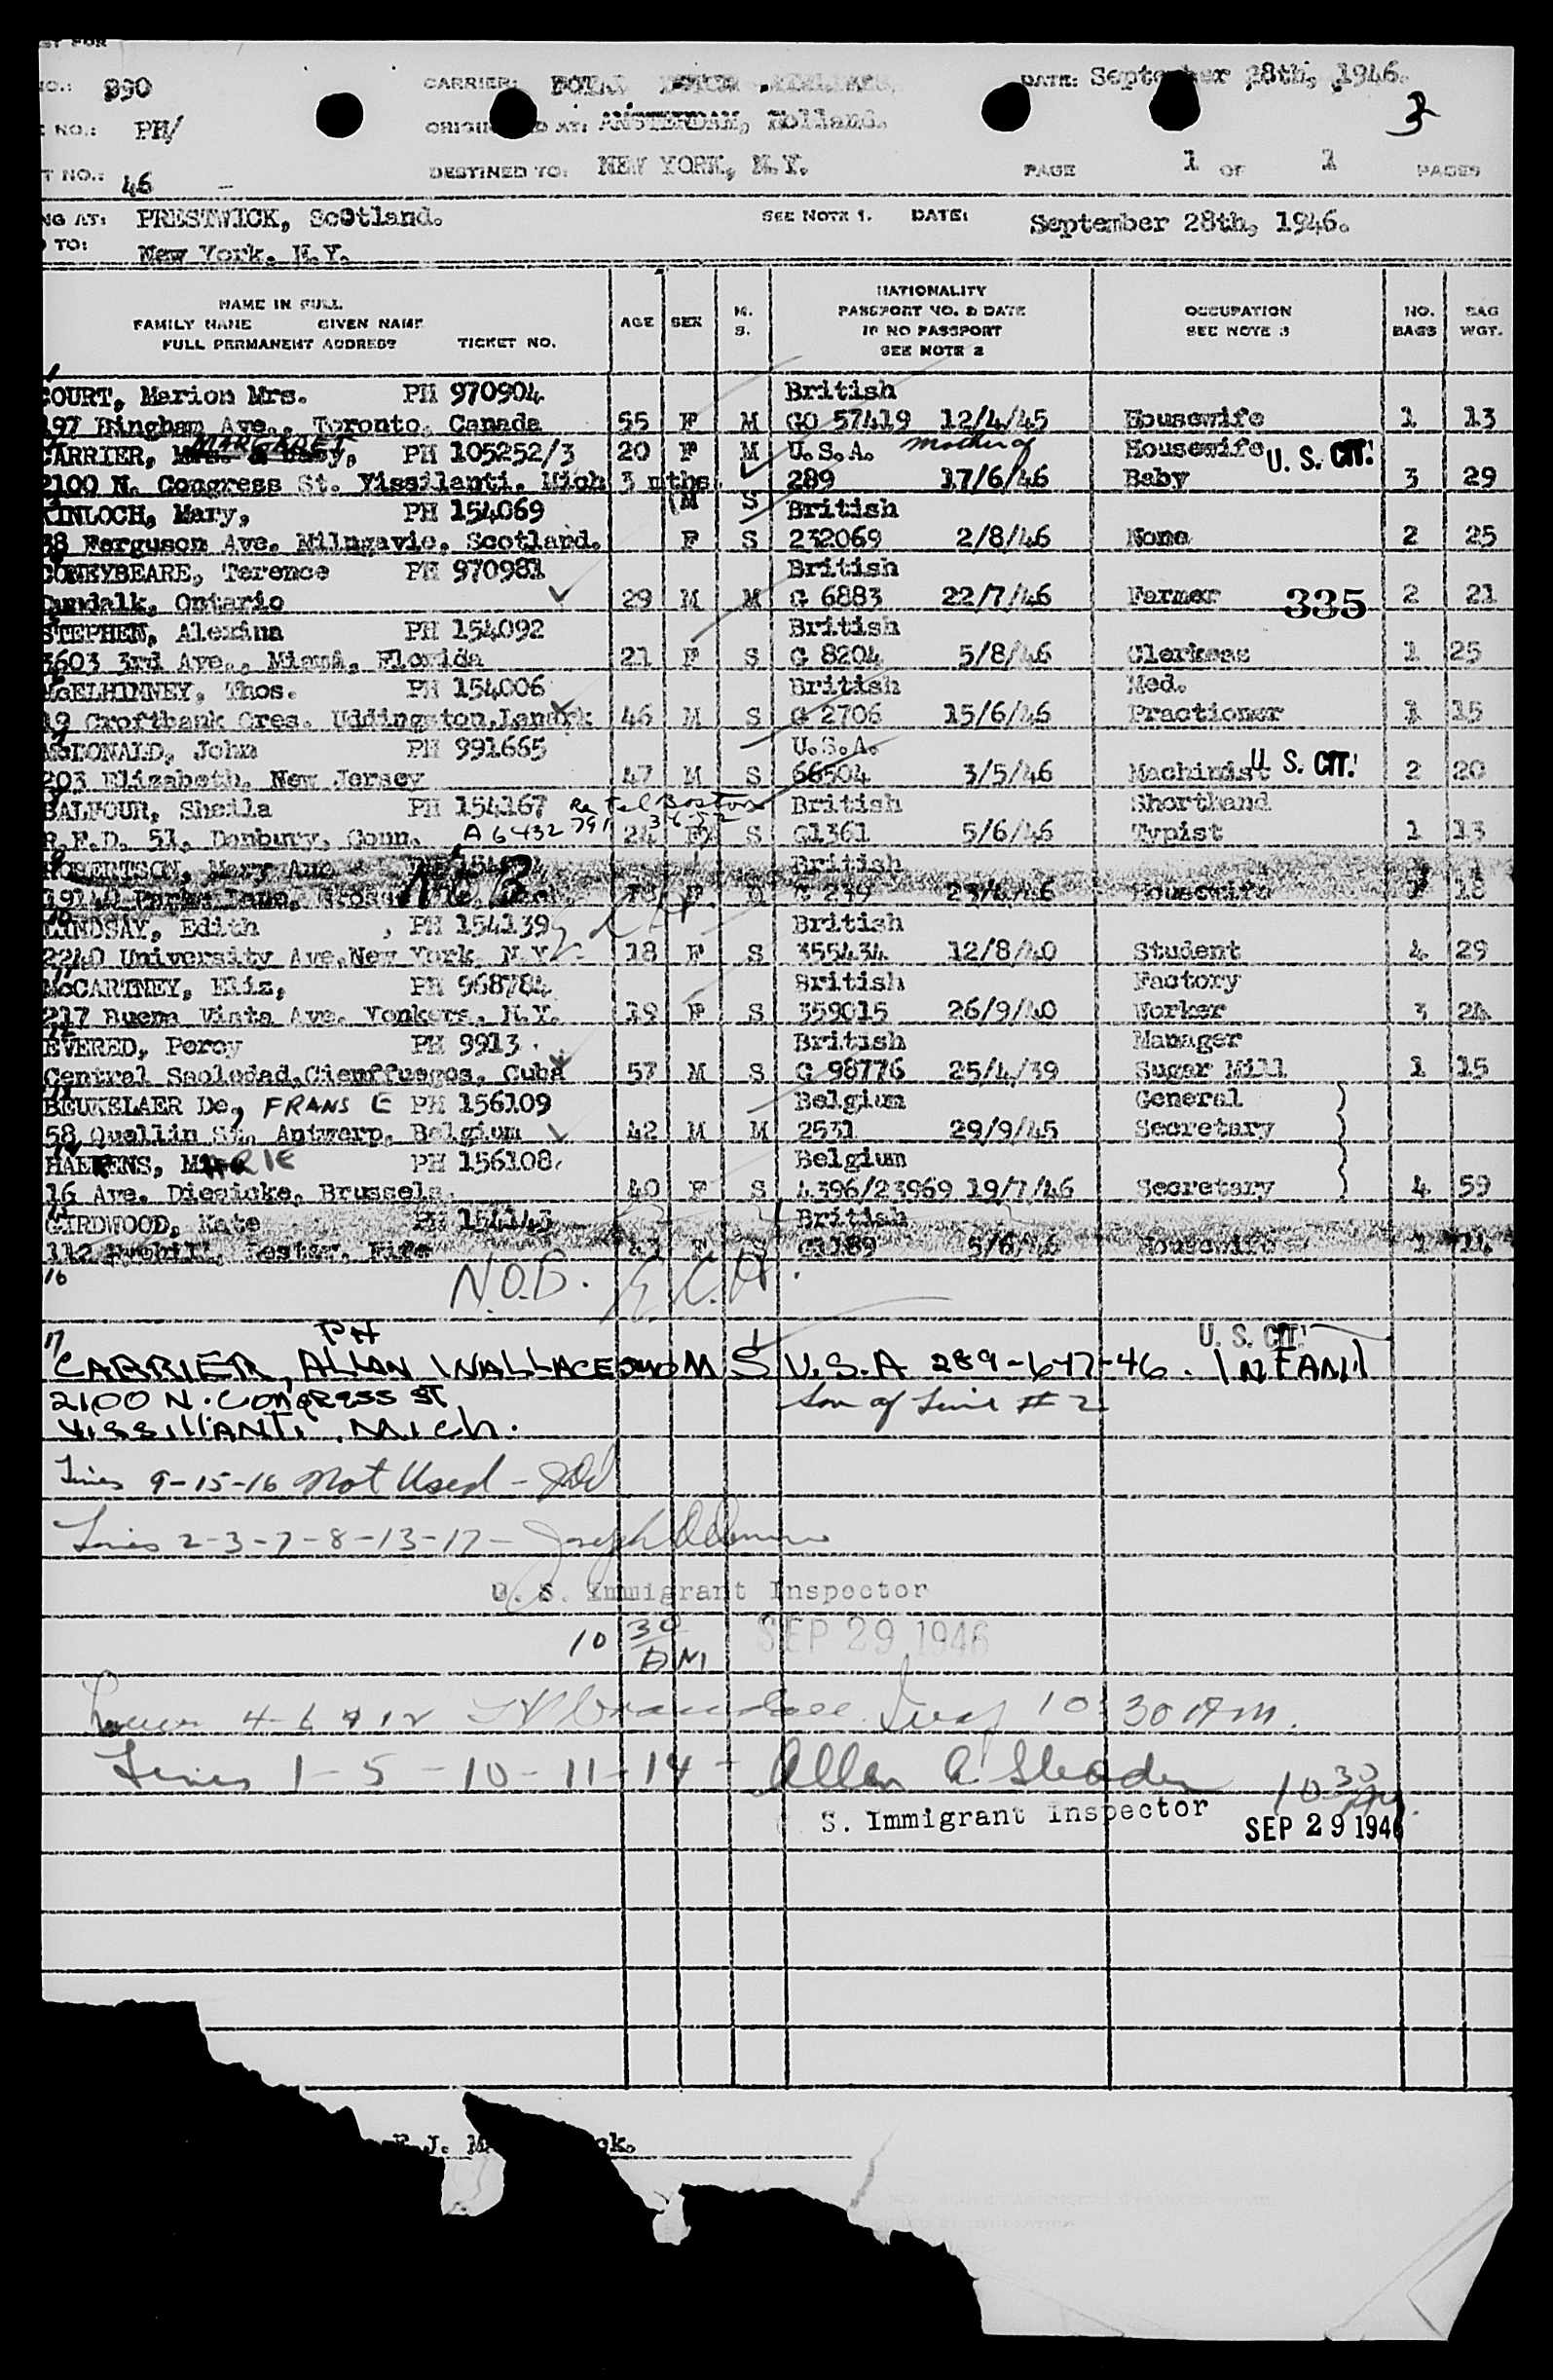 ST FOR
NO.: 990 CARRIER: DATE: September 28th, 1946.
NO.: PH/ ORIGIN D AT: AMSTERDAM, Holland. 3
T NO.: 46 - DESTINED TO: NEW YORK, N.Y. PAGE 1 OF 1 PAGES
NG AT: PRESTWICK, Scotland. SEE NOTE 1. DATE: September 28th, 1946.
TO: New York, N.Y.
NAME IN FULL
FAMILY NAME GIVEN NAME
FULL PERMANENT ADDRESS TICKET NO. AGE SEX M. S. NATIONALITY PASSPORT NO. & DATE IF NO PASSPORT SEE NOTE 2 OCCUPATION SEE NOTE 3 NO. BAGS BAG WGT.
1
COURT, Marion Mrs. PH 970904 British
197 Bingham Ave., Toronto, Canada 55 F M GO 57419 12/4/45 Housewife 1 13
MARGARET
CARRIER, Mrs. & Baby, PH 105252/3 20 F M U.S.A. Mother of Housewife U. S. CIT.
2100 N. Congress St. Yissilanti, Mich 3 mths 289 17/6/46 Baby 3 29
KINLOCH, Mary, PH 154069 M S British
38 Ferguson Ave. Milngavie, Scotland. F S 232069 2/8/46 None 2 25
CONEYBEARE, Terence PH 970981 British
Dundalk, Ontario 29 M M G 6883 22/7/46 Farmer 335 2 21
STEPHEN, Alexina PH 154092 British
3603 3rd Ave., Miami, Florida 21 F S G 8204 5/8/46 Clerkess 1 25
McELHINNEY, Thos. PH 154006 British Med.
19 Croftbank Cres. Uddingston, Lanark 46 M S G 2706 15/6/46 Practioner 1 15
McDONALD, John PH 991665 U.S.A.
203 Elizabeth, New Jersey 47 M S 66504 3/5/46 Machinist U. S. CIT. 2 20
BALFOUR, Sheila PH 154167 Re tel Boston British Shorthand
R.F.D. 51, Danbury, Conn. A 6432 791 24 F S G1361 5/6/46 Typist 1 13
ROBERTSON, Mary Ann British
F G 239 23/4/46 Housewife 18
LINDSAY, Edith , PH 154139 British
2240 University Ave, New York N.Y. 18 F S 355434 12/8/40 Student 4 29
McCARTNEY, Eliz, PH 968784 British Factory
217 Buena Vista Ave. Yonkers, N.Y. 19 F S 359015 26/9/40 Worker 3 24
EVERED, Percy PH 9913 British Manager
Central Saoledad, Cienffuegos, Cuba 57 M S G 98776 25/4/39 Sugar Mill 1 15
BEUKELAER De, FRANS E PH 156109 Belgium General
58 Quellin St. Antwerp, Belgium 42 M M 2531 29/9/45 Secretary
HAERENS, MARIE PH 156108 Belgium
16 Ave. Diesicke, Brussels. 40 F S 4396/23969 19/7/46 Secretary 4 59
GIRDWOOD, Kate PH 154143 British
G1189 5/6/46 Housewife 1 14
16 N.O.B.
17 PH U. S. CIT.
CARRIER, ALLAN WALLACE 3MO M S U.S.A 289-6-17-46. INFANT
2100 N. CONGRESS ST Son of Line # 2
YISSILIANTI, MICH.
Lines 9-15-16 Not Used -
Lines 2-3-7-8-13-17-
U. S. Immigrant Inspector
10 30 AM SEP 29 1946
4-6 12 Insp 10:30 AM.
Lines 1-5-10-11-14 - Allen 10 30 AM.
S. Immigrant Inspector SEP 29 1946